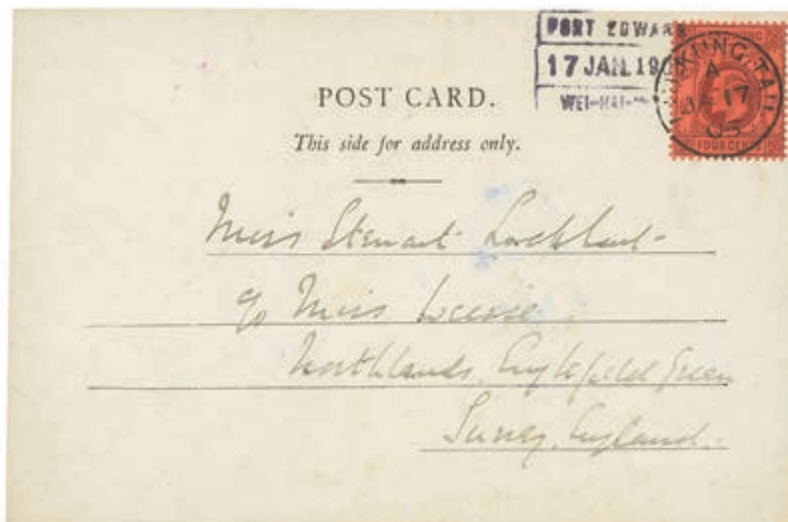 PORT EDWARD
17 JAN. 19
WEI-HAI-
LIU KUNG TAU
A
JA 17
05
FOUR CENTS
POST CARD.
This side for address only.
Miss Stewart Lockhart
c/o Miss
Northlands, Englefield Green
Surrey, England.